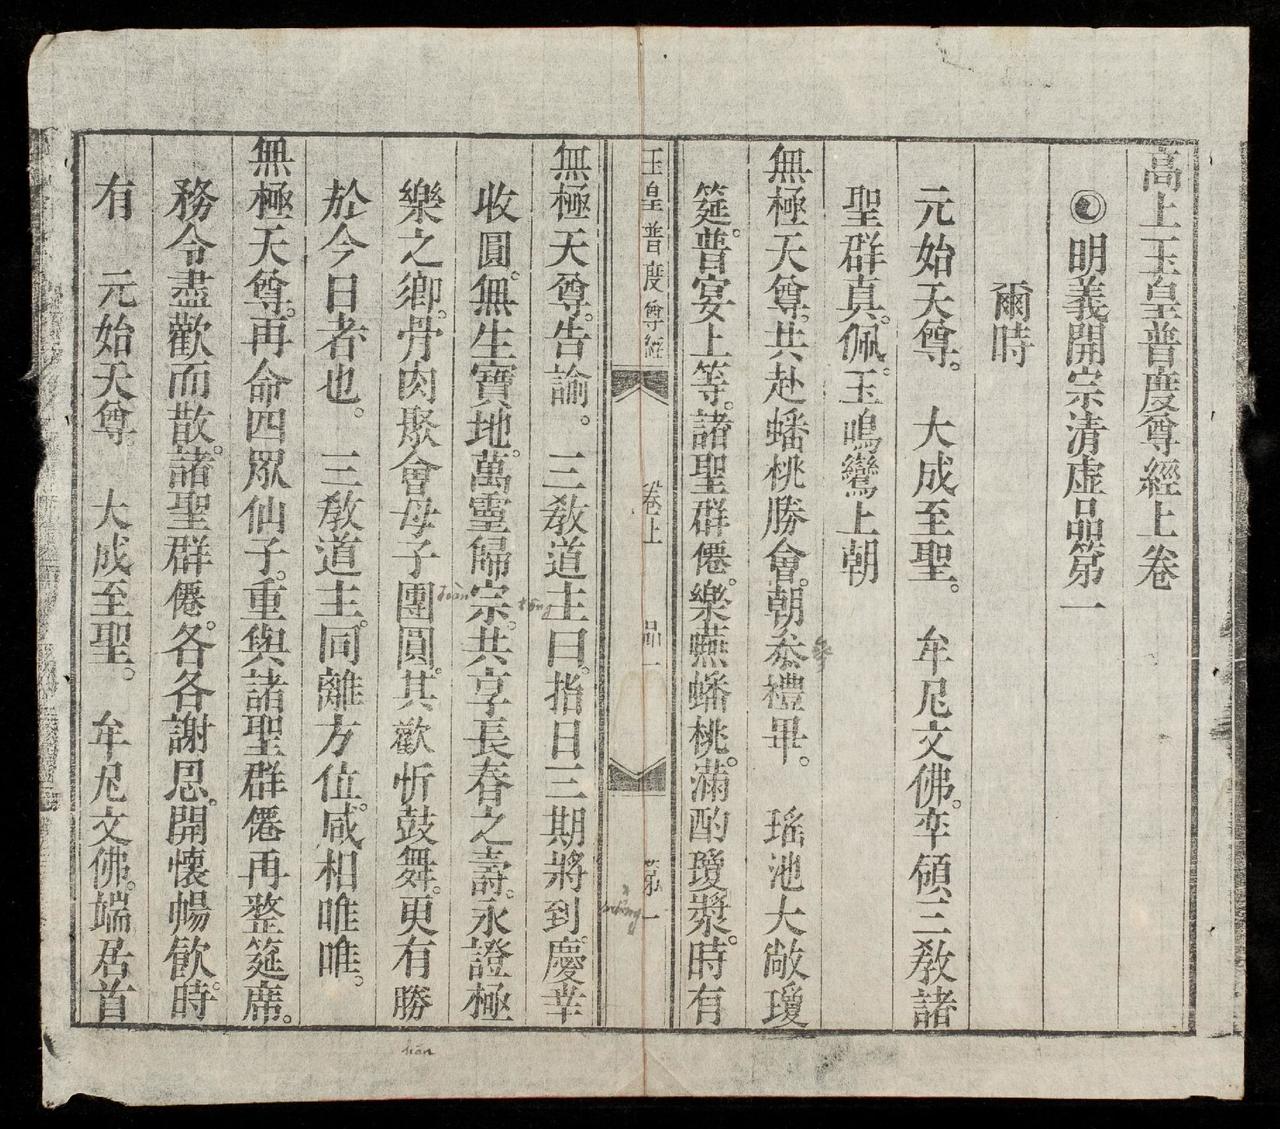 高上玉皇普度尊經上卷
明義開宗清虛品第一
爾時
元始天尊。 大成至聖。 牟尼文佛。率領三敎諸
聖群真。佩。玉鳴鸞上朝
無極天尊。共赴蟠桃勝會。朝叅禮畢。 瑤池大敞瓊
筵。普宴上等。諸聖群僊。樂蘸蟠桃。滿酌瓊漿。時有
玉皇普度尊經 卷上 品一 第一
無極天尊。告諭。 三敎道主曰。指日三期將到。慶幸
收圓。無生寶地。萬靈歸宗。共享長春之壽。永證極
樂之鄉。骨肉聚會母子團圓。其歡忻鼓舞。更有勝
於今日者也。 三敎道主。同離方位。咸相唯唯。
無極天尊。再命四眾仙子。重與諸聖群僊再整筵席。
務令盡歡而散。諸聖群僊。各各謝恩。開懷暢飲。時
有 元始天尊 大成至聖。 牟尼文佛。端居首
參
tōng